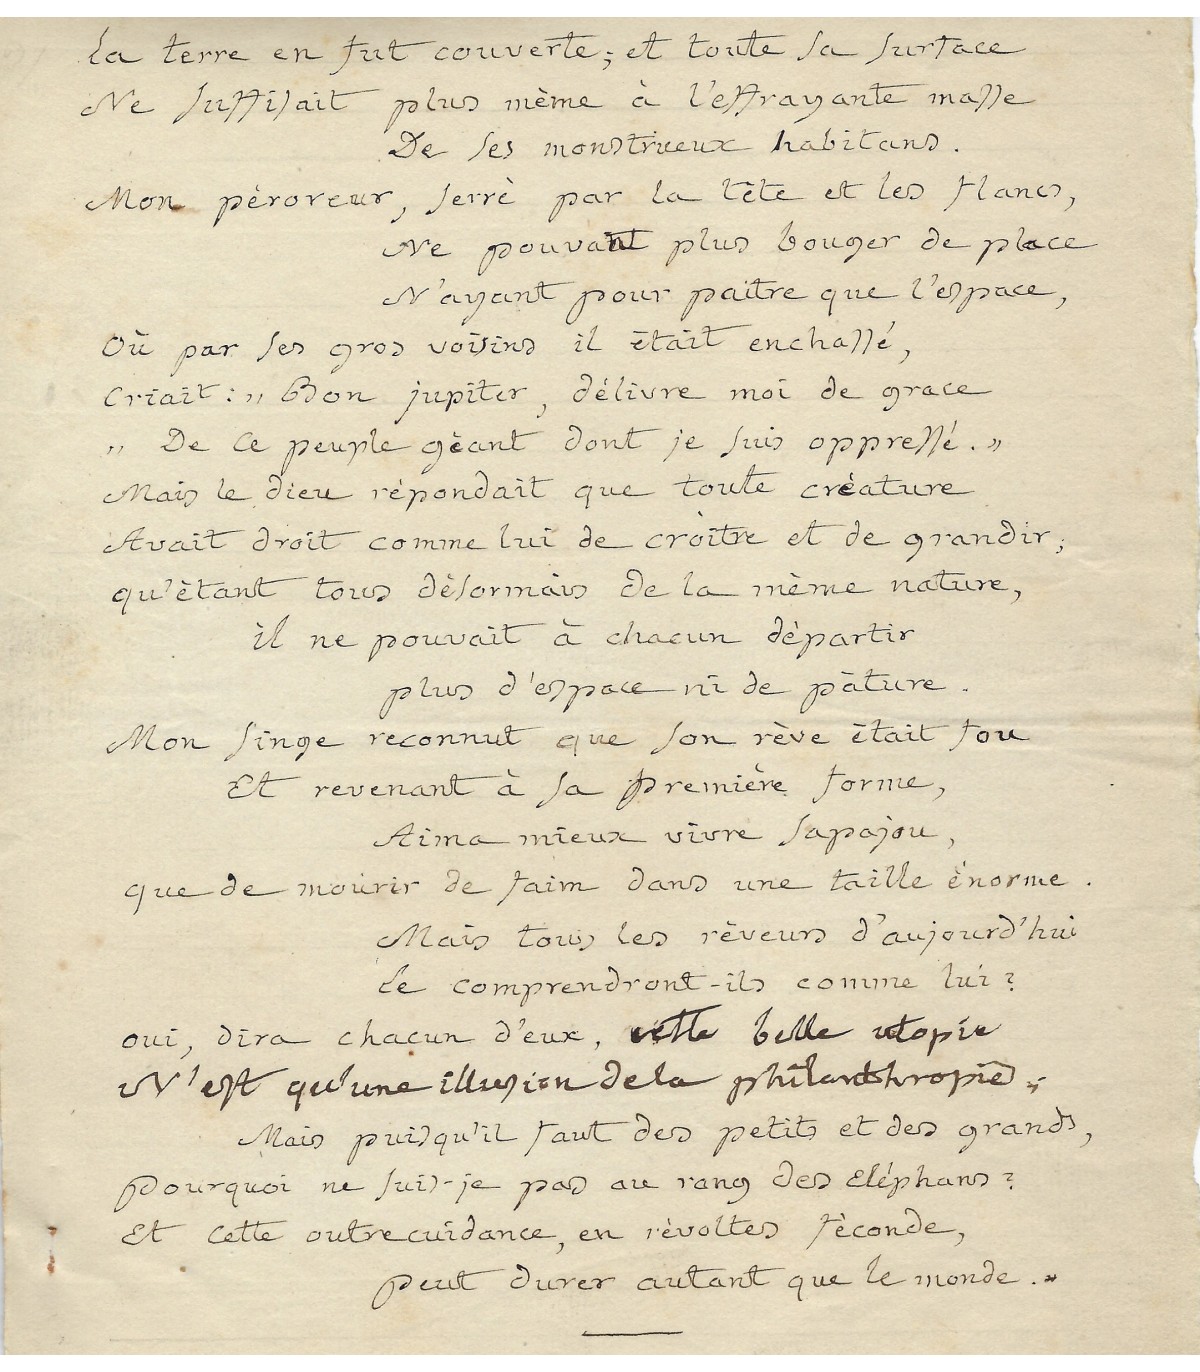 La terre en fut couverte; et toute sa surface
Ne suffisait plus même à l'effrayante masse
De ses monstrueux habitans.
Mon péroreur, serré par la tête et les flancs,
Ne pouvant plus bouger de place
N'ayant pour paitre que l'espace,
Où par ses gros voisins il était enchassé,
Criait: " Bon jupiter, délivre moi de grace
" De ce peuple géant dont je suis oppressé."
Mais le dieu répondait que toute créature
Avait droit comme lui de croître et de grandir;
qu'étant tous désormais de la même nature,
il ne pouvait à chacun départir
plus d'espace ni de pâture.
Mon singe reconnut que son rêve était fou
Et revenant à sa première forme,
Aima mieux vivre sapajou,
que de mourir de faim dans une taille énorme.
Mais tous les rêveurs d'aujourd'hui
Le comprendront-ils comme lui?
oui, dira chacun d'eux, cette belle utopie
N'est qu'une illusion de la philanthropie;
Mais puisqu'il faut des petits et des grands,
pourquoi ne suis-je pas au rang des Eléphans?
Et cette outrecuidance, en révoltes féconde,
peut durer autant que le monde."